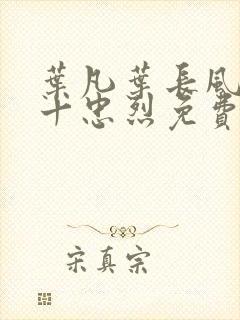 葉凡葉長風
十忠烈免費
宋真宗